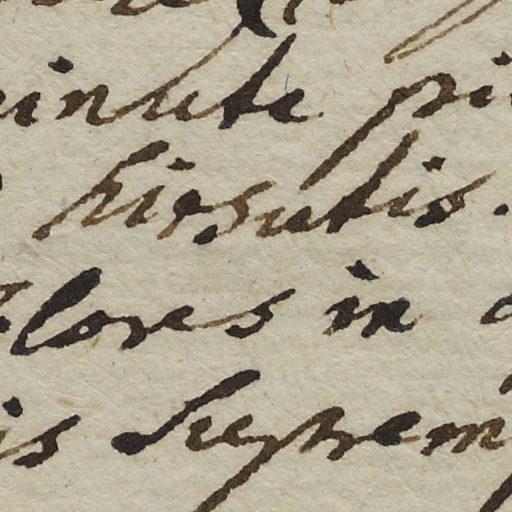 minute pi
hirsutis.
flores in
is suprem